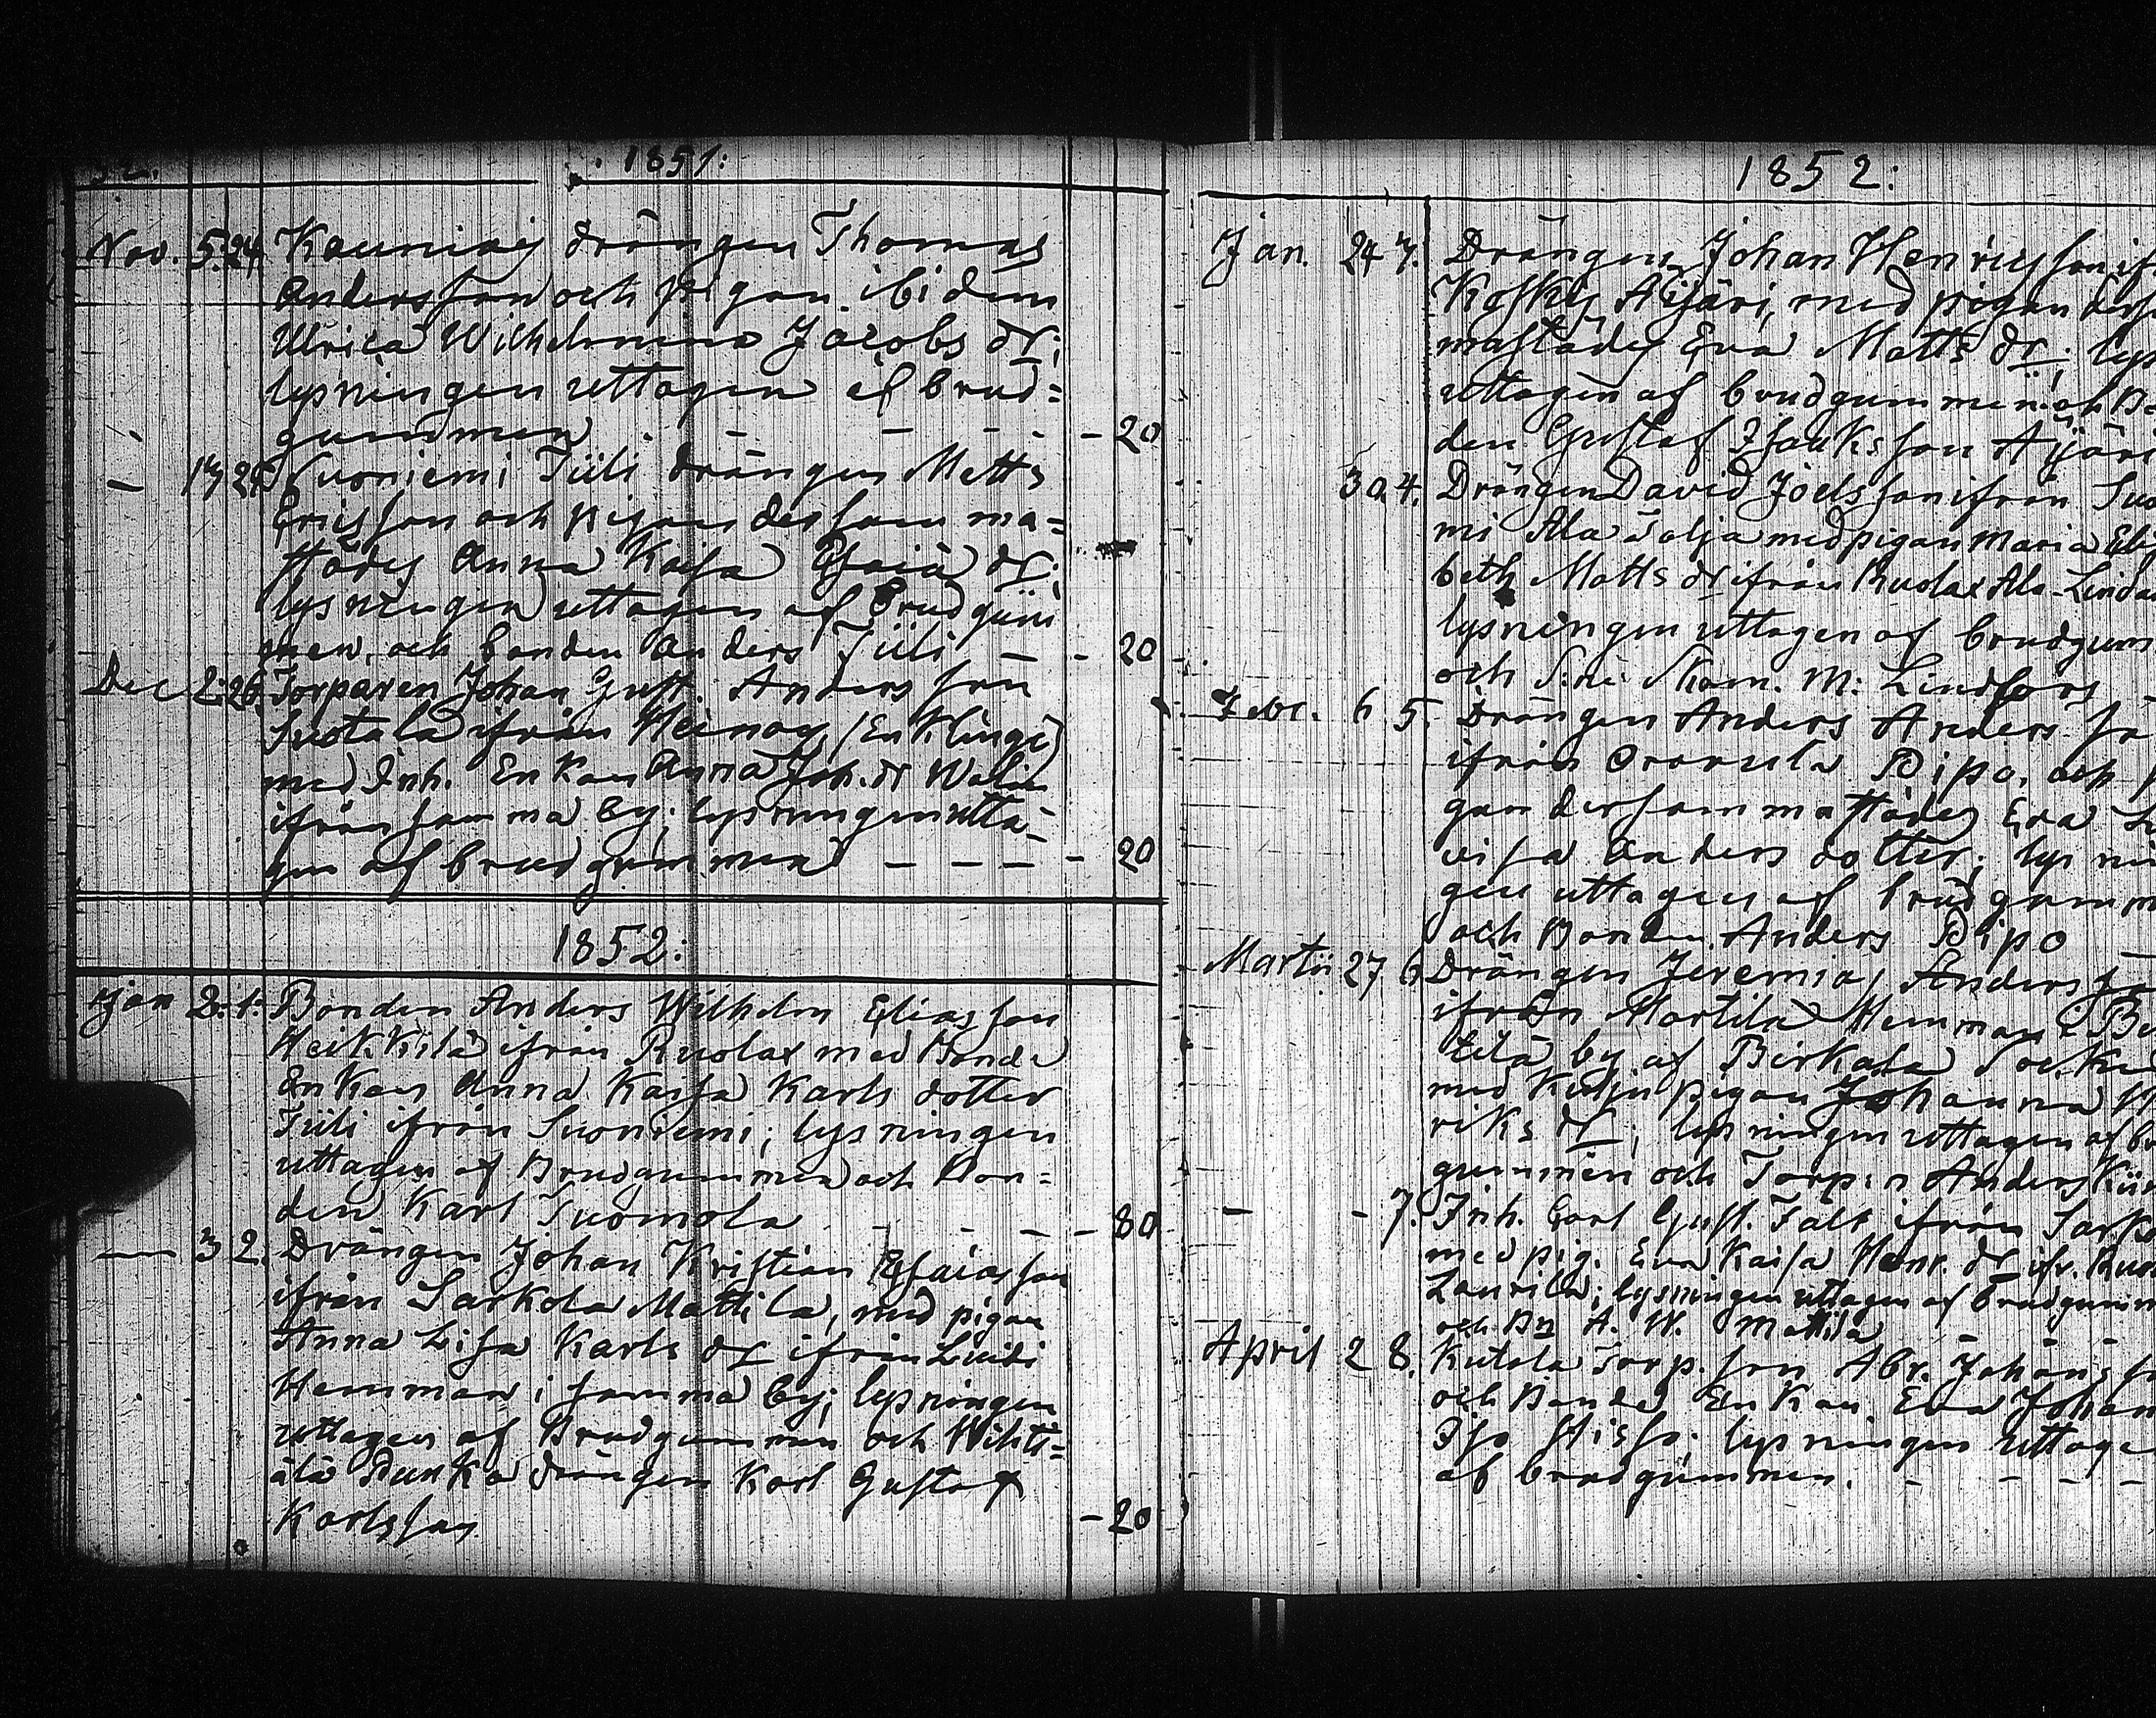 1851:
Nov. 5. 24. Kauniais drängen Thomas
Andersson och pigan ibidem
Ulrica Wilhelmina Jacobs dr;
lysningen uttagen af brud=
gummen - - - - 20
— 17 25 Suoniemi Tüli drängen Matts
Ericsson och pigan dersam ma=
städes Anna Kaisa Esaiä dr;
lysningen uttagen af Brudgum
men, och bonden Anders Tüli - - 20
Dec 2. 26. Torparen Johan Gust. Andersson
ifrån Heinoo
med Inh. Enkan Anna Joh. dr
ifrån samma by; lysningen utta-
gen af brudgummen - - - - 20
1852:
Jan 2. 1. Bonden Anders Wilhelm Eliasson
Heikkilä ifrån Ruolax med Bonde
Enkan Anna Kaisa Karls dotter
Tüli ifrån Suoniemi; lysningen
uttagen af Brudgummen och Bon=
den Karl Suomola - - - - 80
— 3 2. Drängen Johan Kristian Esaiasson
ifrån Sarkola Mattila, med pigan
Anna Lisa Karls dr ifrån
Hemman i samma by; lysningen
uttagen af Brudgummen och
drängen Karl Gustaf
Karlsson - 20
1852:
Jan. 24 3. Drängen Johan Henricsson if
Koskis Äijäri, med pigan ders
mastädes Eva Matts dr; lys
uttagen af brudgummen och Bo
den Gustaf Isaksson Äijäri
30. 4. Drängen David Joelsson ifrån Suo
mi Ala Tolja med pigan Maria Eli
beth Matts dr ifrån Ruolax Ala-
lysningen uttagen af brudgum
och M: Lindfors
Febr. 6 5. Drängen Anders Anders so
ifrån Pipo, och p
gan dersam mastädes Eva L
visa Anders dotter; lysnin
gen uttagen af brudgumm
och Bonden Anders Pipo
Martii 27 6. Drängen Jeremias Andersso
ifrån Martila Hemman i Be
lilä by af Birkala Socken
med pigan Johanna H
riks dr; lysningen uttagen af br
gummen och Torp:n Anders
— - 7. Inh. Carl Gust. Fält ifrån Sark
med pig. Eva Kaisa Henr. dr ifr. Ruo
Laurila; lysningen uttagen af brudgumm
och Bn A. W. Mattila
April 2 8. Kutala Torp. son Abr. Johans so
och Bonde Enkan Eva Johan
Iso; lysningen uttage
af brudgummen. - - - -